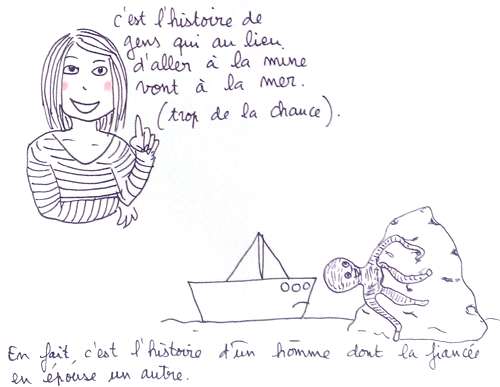 c'est l'histoire de
gens qui au lieu
d'aller à la mine
vont à la mer.
(trop de la chance).
En fait, c'est l'histoire d'un homme dont la fiancée
en épouse un autre.